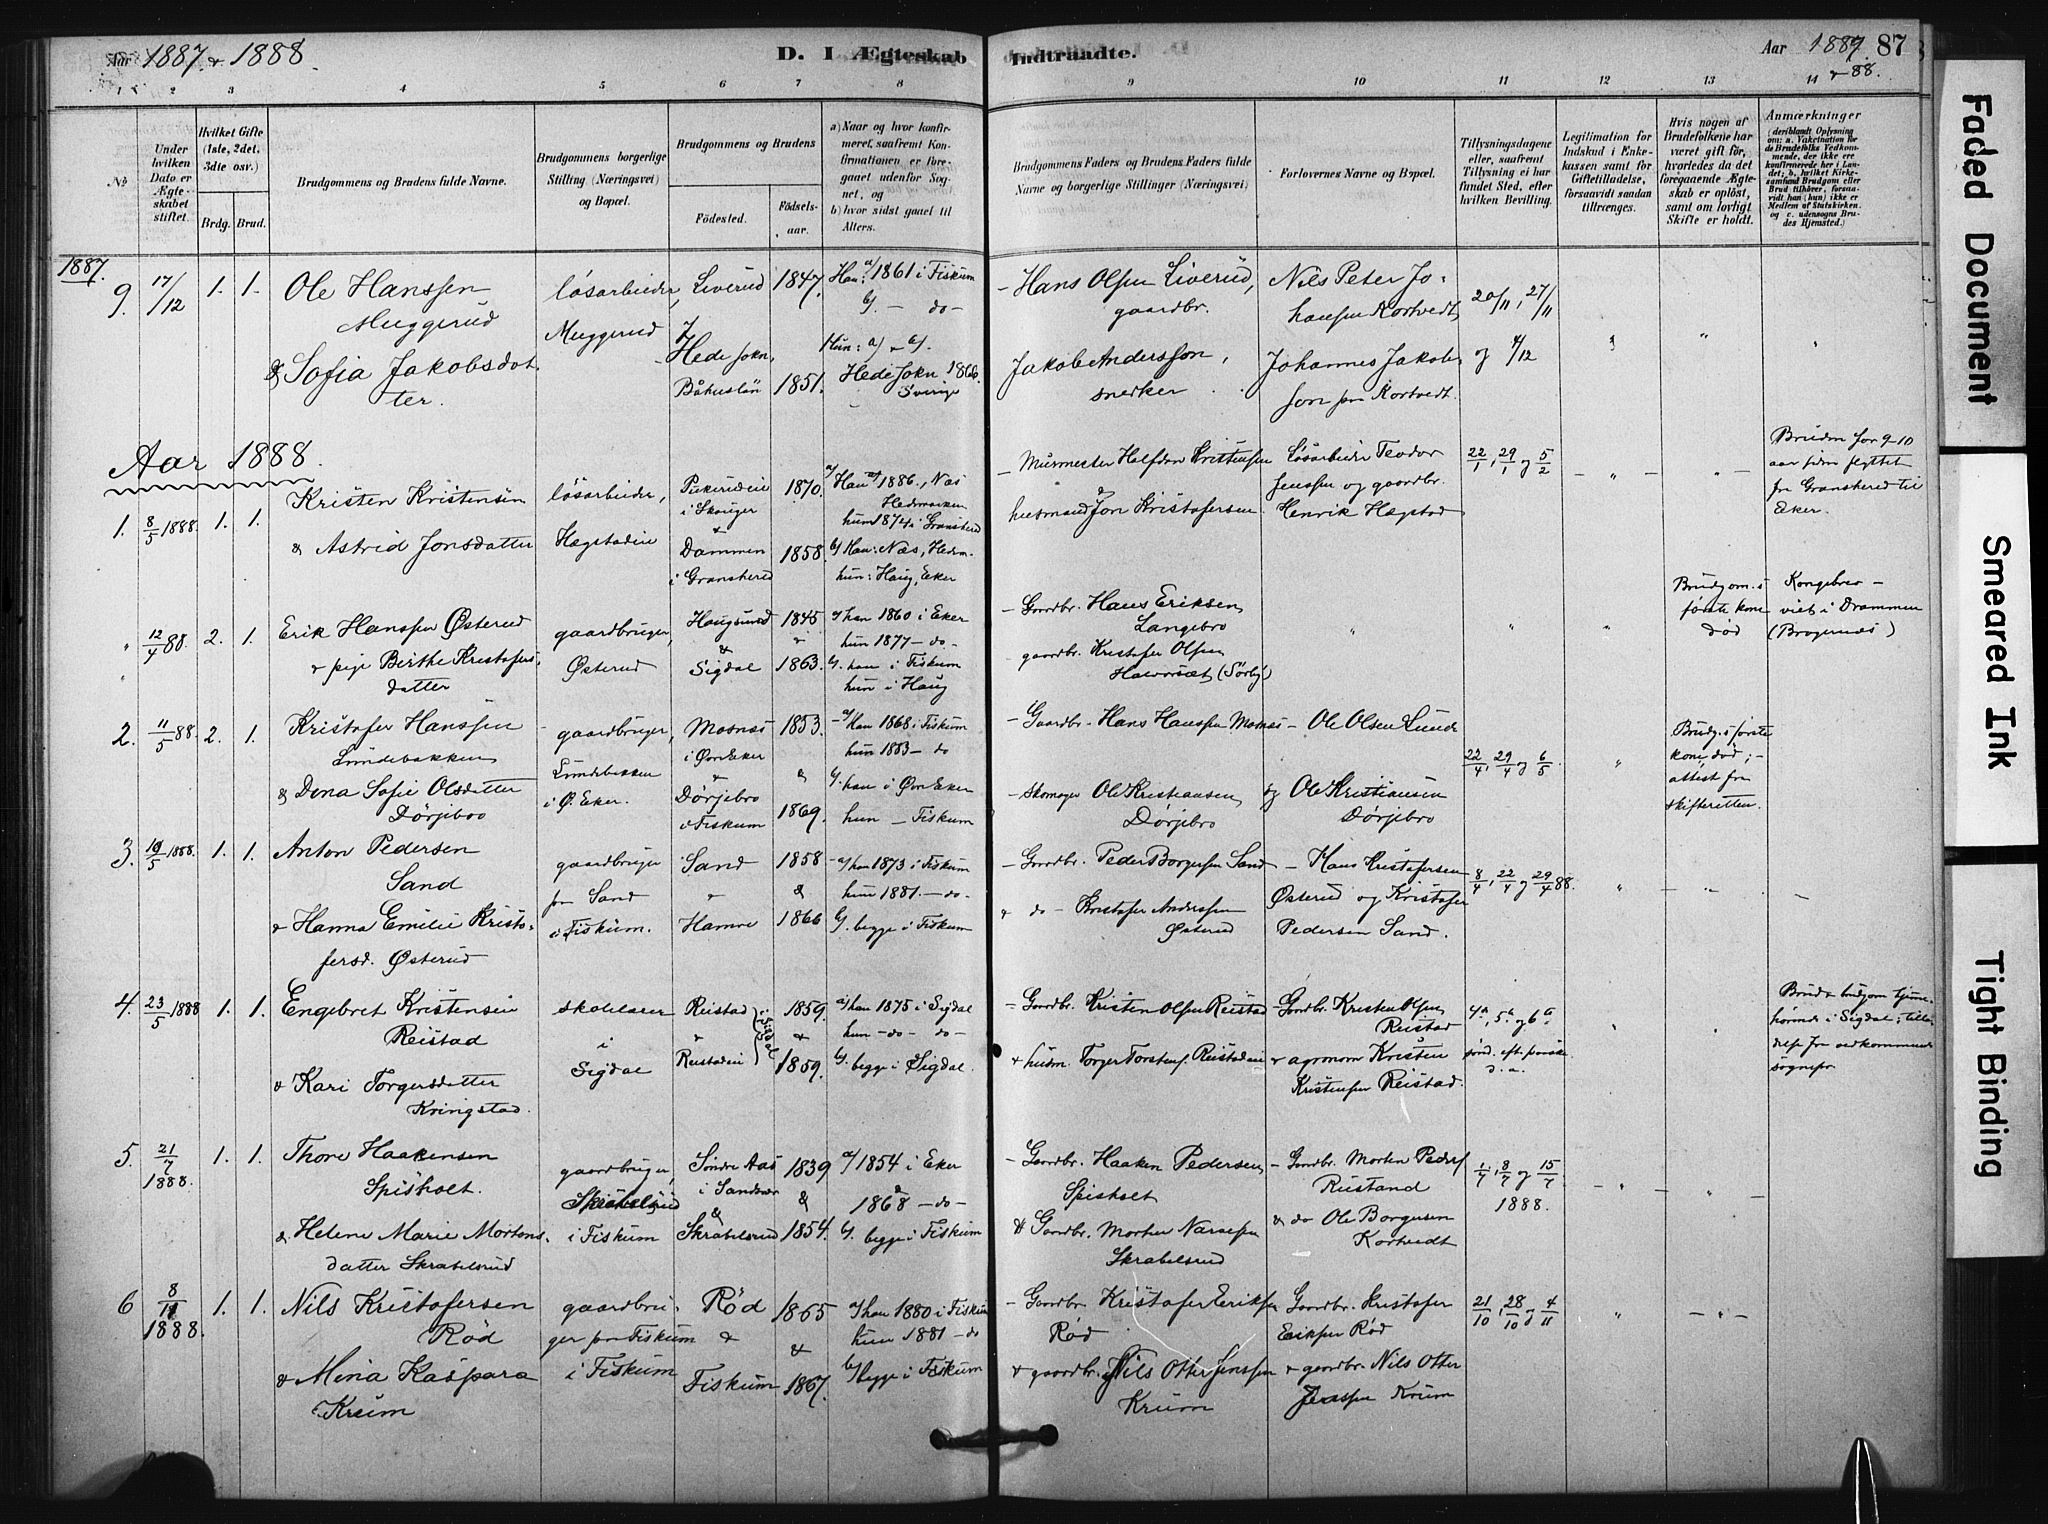 Aar 1887 & 1888.
D. I Ægteskab
Indtraadte.
Aar 1887 & 88.
87
1 2 3 4 5 6 7 8 9 10 11 12 13 14
No
Under hvilken Dato er Ægteskabet stiftet.
Hvilket Gifte (1ste, 2det, 3die osv.)
Brdg. Brud.
Brudgommens og Brudens fulde Navne.
Brudgommens borgerlige Stilling (Næringsvei) og Bopæl.
Brudgommens og Brudens
Födested.
Födselsaar.
a) Naar og hvor konfirmeret, saafremt Konfirmationen er foregaaet udenfor Sognet, og
b) hvor sidst gaaet til Alters.
Brudgommens Faders og Brudens Faders fulde Navne og borgerlige Stillinger (Næringsvei)
Forlovernes Navne og Bopæl.
Tillysningsdagene eller, saafremt Tillysning ei har fundet Sted, efter hvilken Bevilling.
Legitimation for Indskud i Enkekassen samt for Giftetilladelse, forsaavidt saadan tiltrænges.
Hvis nogen af Brudefolkene har været gift før, hvorledes da det foregaaende Ægteskab er opløst, samt om lovligt Skifte er holdt.
Anmærkninger
(deriblandt Oplysning om: a. Vakcination for de Brudefolks Vedkommende, der ikke ere konfirmerede her i Landet; b. hvilket Kirkesamfund Brudgom eller Brud tilhører, forsaavidt han (hun) ikke er Medlem af Statskirken. og c. udensogns Brudes Hjemsted.)
1887.
9. 17/12 1. 1.
Ole Hanssen
Muggerud
& Sofia Jakobsdatter.
løsarbeider,
Muggerud
Liverud
&
Hede sokn,
Båhuslän
1847.
1851.
Han: a/ 1861 i Fiskum
b/. – do –
Hun: a/ & b/.
Hede sokn 1866.
Sverige
– Hans Olsen Liverud,
gaardbr.
Jakob Anderssøn,
snedker
Nils Peter Johansen Kortvedt,
Johannes Jakobsson paa Kortvedt.
20/11, 27/11
og 4/12
Aar 1888.
1. 8/5 1888. 1. 1.
Kristen Kristensen
& Astrid Jonsdatter
løsarbeider,
Hægstadeie
i Skauger
&
Dammen
i Gransherred
1870.
1858.
a/ Han 1886, Næs
Hedemarken
hun 1874 i Gransherred
b/ Han: Næs, Hedem.
hun: Haug, Eker
– Murmester Halfdan Kristensen
&
husmand Jon Kristofersen
Løsarbeider Teodor
Jenssen og gaardbr.
Henrik Hægstad
22/1, 29/1 og 5/2
Bruden for 9-10
aar siden flyttet
fra Gransherred til
Eker.
" 12/4 88. 2. 1.
Erik Hanssen Østerud
& pige Berthe Kristofersdatter
gaardbruger,
Østerud
Haugsund
&
Sigdal
1845
&
1863.
a/ han 1860 i Eker
hun 1877 – do –
b/. han i Fiskum
hun i Haug
– Gaardbr. Hans Eriksen
Langebro
– gaardbr. Kristofer Olsen
Halvorsæt (Sørby)
Brudgom.s
første kone
død
Kongebrev –
viet i Drammen
(Bragernæs)
2. 11/5 88. 2. 1.
Kristofer Hanssen
Lundebakken
& Dina Sofie Olsdatter
Dørjebro
gaardbruger,
Lundebakken
i Ø. Eker.
Mosnæs
i Øvr. Eker
&
Dørjebro
i Fiskum
1853.
&
1869.
a/ Han 1868 i Fiskum
hun 1883 – do
b/. han i Øvr. Eker
hun – Fiskum
– Gaardbr. Hans Hanssen Mosnæs
– Skomager Ole Kristiansen,
Dørjebro
– Ole Olsen Lunde
og Ole Kristiansen
Dørjebro
22/4, 29/4 og 6/5
Brudg.s første
kone død; –
attest fra
skifteretten.
3. 10/5 1888. 1. 1.
Anton Pedersen
Sand
& Hanna Emilie Kristofersd. Østerud
gaardbruger
paa Sand
i Fiskum.
Sand
&
Hamre
1858
&
1866
a/ han 1873 i Fiskum
hun 1881 – do –
b/. begge i Fiskum
– Gaardbr. Peder Borgersen Sand
& do – Kristofer Anderssen
Østerud
– Hans Kristofersen
Østerud og Kristofer
Pedersen Sand.
8/4, 22/4 og 29/4 88.
4. 23/5 1888 1. 1.
Engebret Kristensen
Reistad
& Kari Torgersdatter
Kringstad.
skolelærer
i
Sigdal
Reistad
&
Reistadeie
i Sigdal
1859.
&
1859.
a/ han 1875 i Sigdal
hun – do – do –
b/. begge i Sigdal.
– Gaardbr. Kristen Olsen Reistad
& husm. Torger Torstens. Reistadeie
– Gaardbr. Kristen Olsen
Reistad
& agronom Kristen
Kristensen Reistad.
4de, 5te og 6te
sønd. eft. paaske
d. a.
Brud & brudgom hjemmehørende i Sigdal; tilladelse fra vedkommende
sognepr.
5. 21/7 1888. 1. 1.
Thore Haakensen
Spisholt.
& Helene Marie Mortensdatter Skrabelsrud
gaardbruger,
Skrabelsrud
i Fiskum
Søndre Aas
i Sandsvær
&
Skrabelsrud
1839
&
1854.
a/ 1854 i Eker
&
1868 – do –
b/. begge i Fiskum
– Gaardbr. Haaken Pedersen
Spisholt
& Gaardbr. Morten Narvesen
Skrabelsrud
– Gaardbr. Morten Peders.
Rustand
& do Ole Borgersen
Kortvedt
1/7, 8/7 og 15/7
1888.
6 8/11 1888. 1. 1.
Nils Kristofersen
Rød
& Mina Kaspara
Krum
gaardbruger paa Fiskum
i Fiskum
Rød
&
Fiskum
1865
&
1867.
a/ han 1880 i Fiskum
hun 1881 – do
b/ begge i Fiskum
– Gaardbr. Kristofer Eriksen
Rød
& gaardbr. Nils Otter Jenssen
Krum
Gaardbr. Kristofer
Eriksen Rød
& gaardbr. Nils Otter
Jenssen Krum
21/10, 28/10 og 4/11
Faded Document
Smeared Ink
Tight Binding